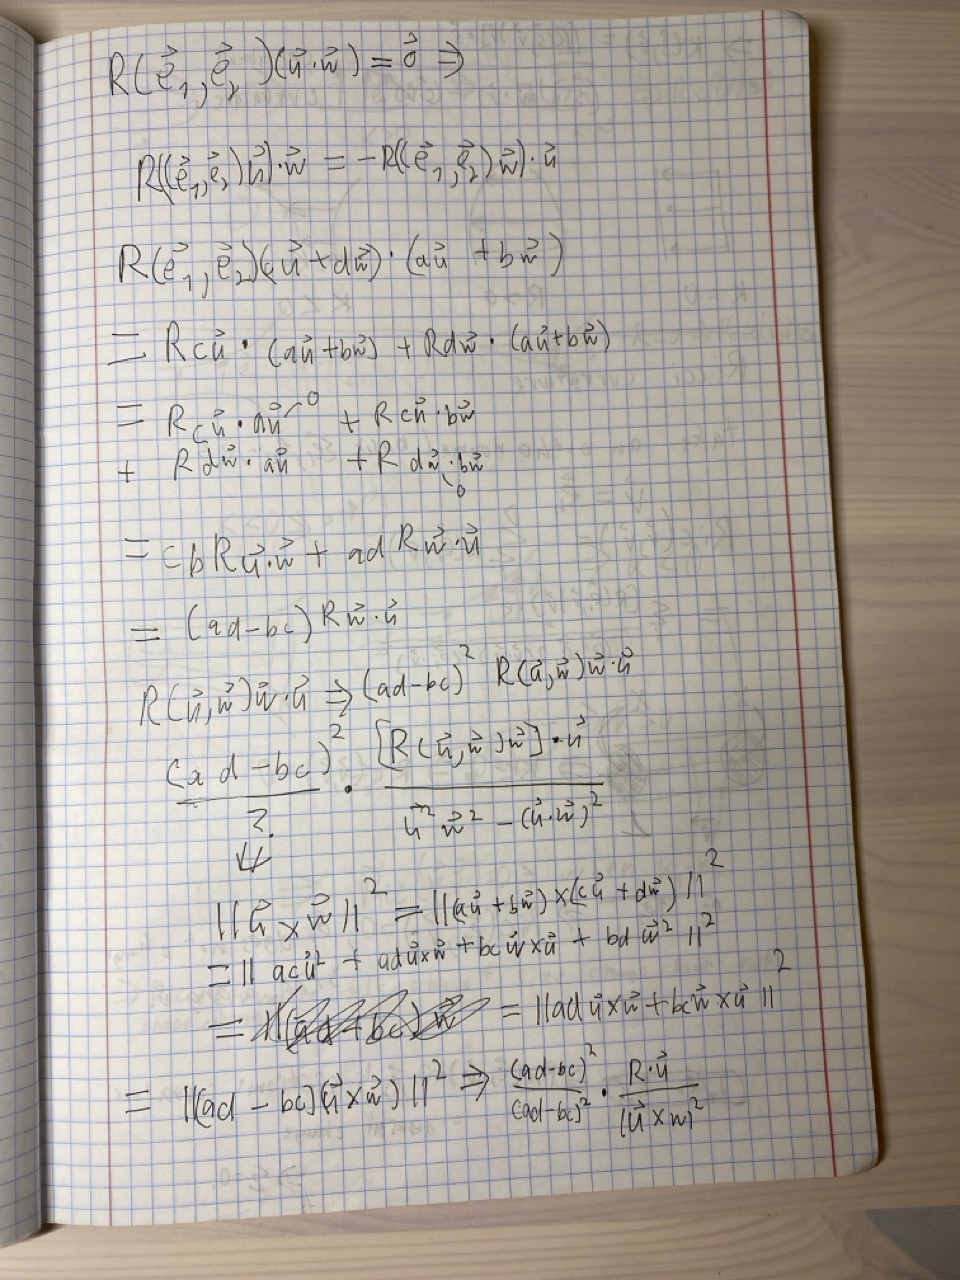 R(e⃗₁, e⃗₂)(u⃗·w⃗) = 0⃗ ⇒
R((e⃗₁, e⃗₂)u⃗)·w⃗ = -R((e⃗₁, e⃗₂)w⃗)·u⃗
R(e⃗₁, e⃗₂)(cu⃗ + dw⃗)·(au⃗ + bw⃗)
= Rcu⃗·(au⃗+bw⃗) + Rdw⃗·(au⃗+bw⃗)
= Rcu⃗·au⃗ 0 + Rcu⃗·bw⃗
+ Rdw⃗·au⃗ + Rdw⃗·bw⃗ 0
= cbRu⃗·w⃗ + adRw⃗·u⃗
= (ad-bc)Rw⃗·u⃗
R(u⃗,w⃗)w⃗·u⃗ ⇒ (ad-bc)² R(u⃗,w⃗)w⃗·u⃗
(ad-bc)²/? · [R(u⃗,w⃗)w⃗]·u⃗/(u⃗² w⃗² - (u⃗·w⃗)²)
⇓
||u⃗×w⃗||² = ||(au⃗+bw⃗)×(cu⃗+dw⃗)||²
= || acu⃗² + adu⃗×w⃗ + bcw⃗×u⃗ + bdw⃗² ||²
= = ||adu⃗×w⃗ + bcw⃗×u⃗||²
= ||(ad-bc)(u⃗×w⃗)||² ⇒ (ad-bc)²/(ad-bc)² · R·u⃗/(u⃗×w)²